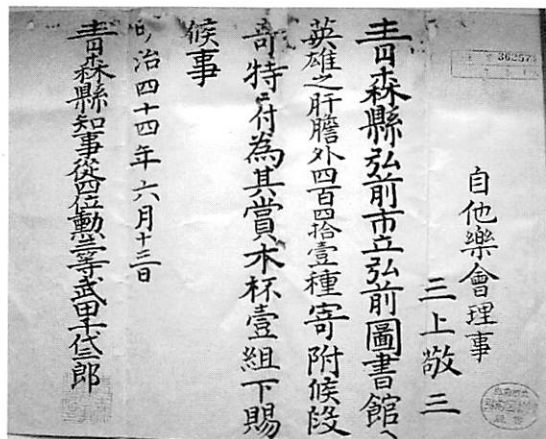 自他樂會理事
三上敬三
青森縣弘前市立弘前圖書館へ
英雄之肝膽外四百四拾壹種寄附候段
奇特ニ付為其賞木杯壹組下賜
候事
明治四十四年六月十三日
青森縣知事從四位勳三等武田千代三郎
36257